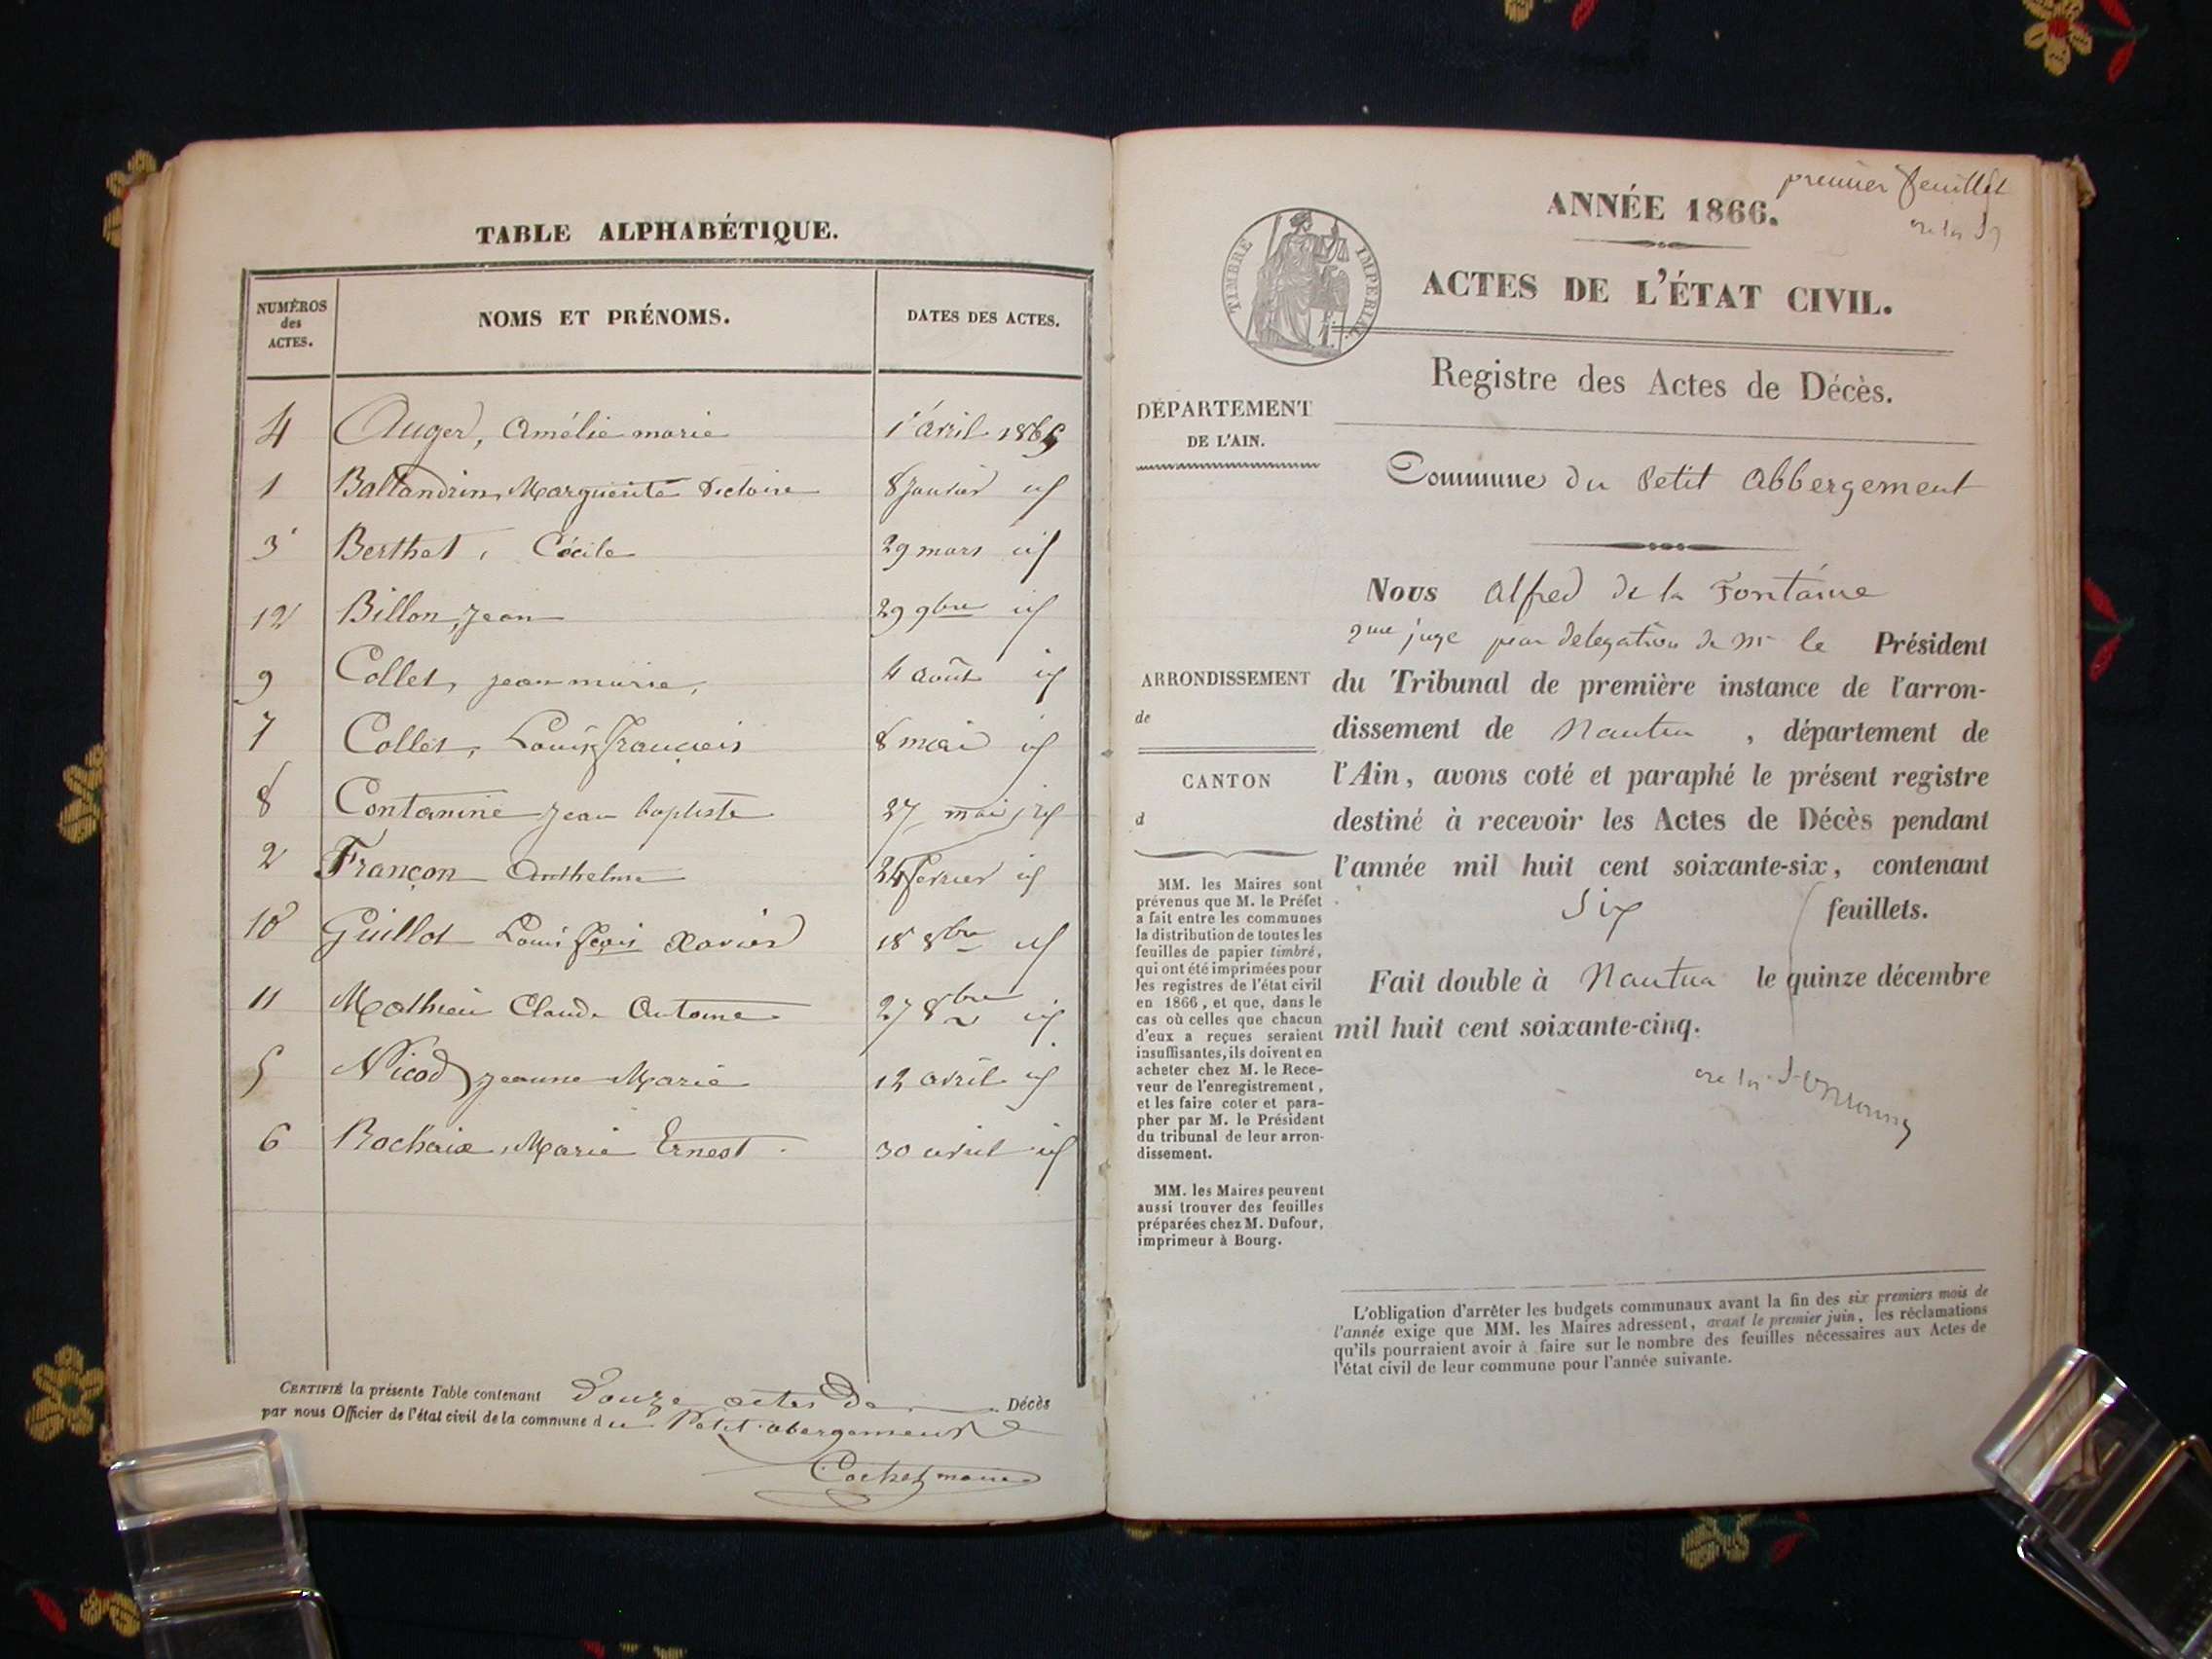 TABLE ALPHABÉTIQUE.
NUMÉROS des ACTES.
NOMS ET PRÉNOMS.
DATES DES ACTES.
4 Auger, Amélie marie 1er avril 1865
1 Ballandrin, Marguerite Victoire 8 janvier id
3 Berthet, Cécile 29 mars id
12 Billon, Jean 29 9bre id
9 Collet, jean marie, 4 août id
7 Collet, Louis François 8 mai id
8 Contamine Jean baptiste 27 mai id
2 Françon Anthelme 24 fevrier id
10 Guillot Louis fçois Xavier 18 8bre id
11 Mathieu Claude Antoine 27 8bre id
5 Nicod jeanne Marie 12 avril id
6 Rochaix, Marie Ernest 30 avril id
CERTIFIÉ la présente Table contenant Douze actes De Décès
par nous Officier de l'état civil de la commune du Petit abergement
Cochet maire
premier feuillet
ANNÉE 1866.
TIMBRE IMPÉRIAL
ACTES DE L'ÉTAT CIVIL.
Registre des Actes de Décès.
DÉPARTEMENT
DE L'AIN.
Commune du Petit Abbergement
Nous Alfred de la Fontaine
juge par delegation de Mr le Président
ARRONDISSEMENT
de
du Tribunal de première instance de l'arron-
dissement de Nantua, département de
CANTON
d
l'Ain, avons coté et paraphé le présent registre
destiné à recevoir les Actes de Décès pendant
l'année mil huit cent soixante-six, contenant
Six feuillets.
Fait double à Nantua le quinze décembre
mil huit cent soixante-cinq.
MM. les Maires sont
prévenus que M. le Préfet
a fait entre les communes
la distribution de toutes les
feuilles de papier timbré,
qui ont été imprimées pour
les registres de l'état civil
en 1866, et que, dans le
cas où celles que chacun
d'eux a reçues seraient
insuffisantes, ils doivent en
acheter chez M. le Rece-
veur de l'enregistrement,
et les faire coter et para-
pher par M. le Président
du tribunal de leur arron-
dissement.
MM. les Maires peuvent
aussi trouver des feuilles
préparées chez M. Dufour,
imprimeur à Bourg.
L'obligation d'arrêter les budgets communaux avant la fin des six premiers mois de
l'année exige que MM. les Maires adressent, avant le premier juin, les réclamations
qu'ils pourraient avoir à faire sur le nombre des feuilles nécessaires aux Actes de
l'état civil de leur commune pour l'année suivante.